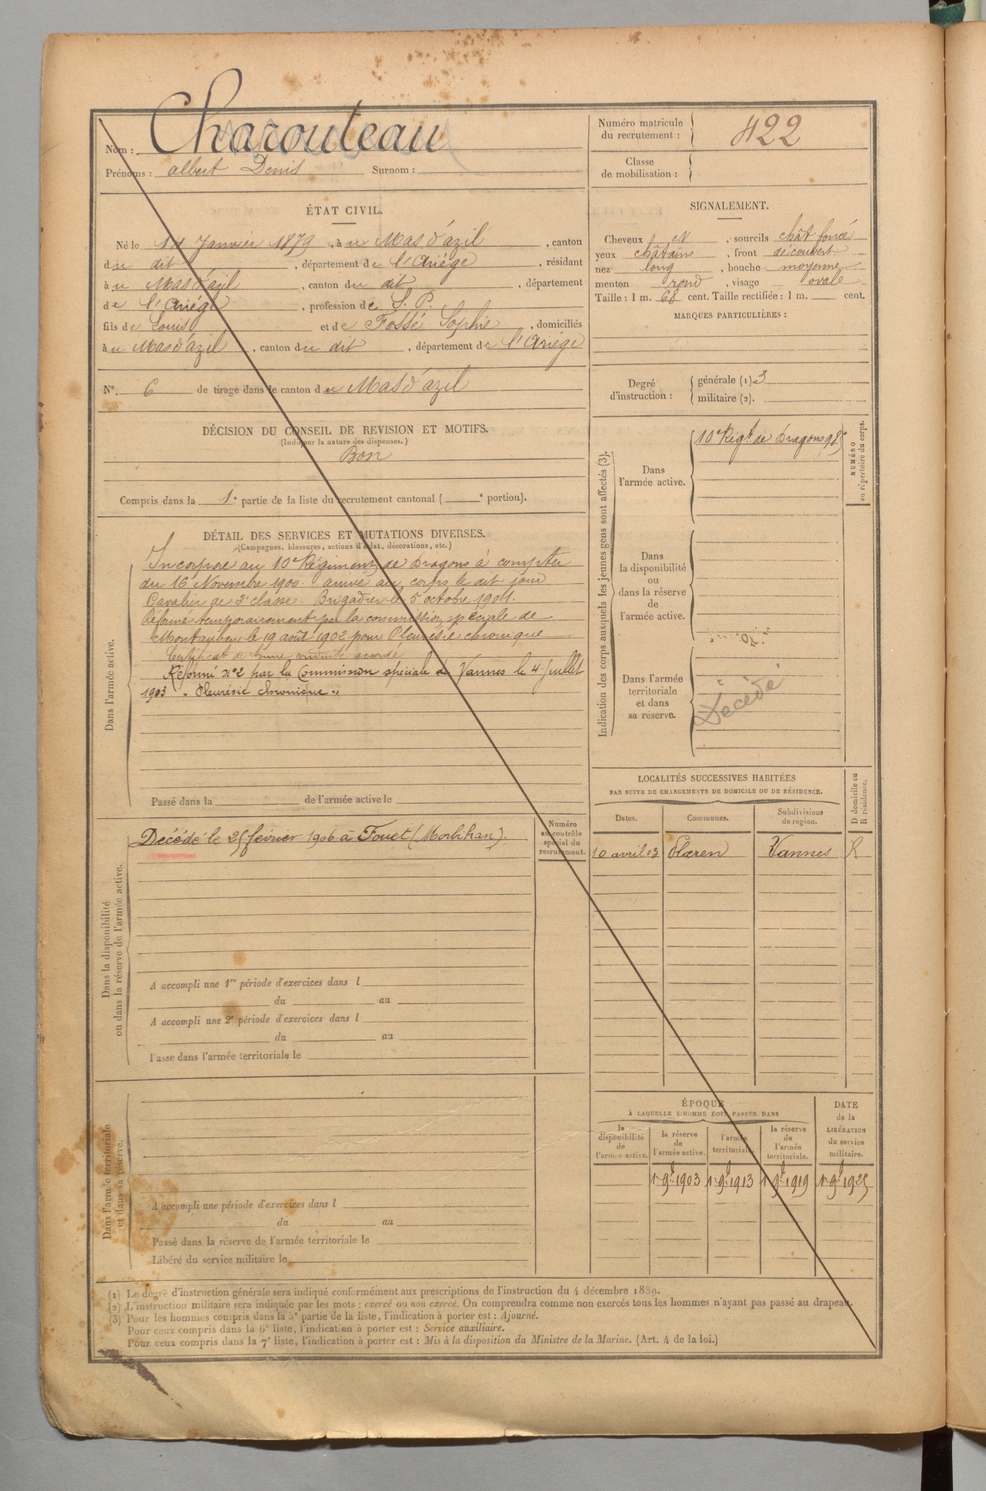 Nom : Charouteau
Prénoms : albert Denis Surnom :
Numéro matricule du recrutement : 422
Classe de mobilisation :
ÉTAT CIVIL.
Né le Janvier 1879, à u Mas d'azil, canton
du dit, département de l'Ariège, résidant
à u Mas d'azil, canton du dit, département
de l'Ariège, profession de S. P.
fils de Louis et de Fossé Sophie, domiciliés
à u Mas d'azil, canton du dit, département de l'Ariège
SIGNALEMENT.
Cheveux et sourcils chât foncé
yeux châtains, front découvert
nez long, bouche moyenne
menton rond, visage ovale
Taille : 1 m. 68 cent. Taille rectifiée : 1 m. cent.
MARQUES PARTICULIÈRES :
N°. 6 de tirage dans le canton du Mas d'azil
Degré d'instruction : générale (1) 3
militaire (2).
DÉCISION DU CONSEIL DE REVISION ET MOTIFS.
(Indiquer la nature des dispenses.)
Bon
Compris dans la 1e partie de la liste du recrutement cantonal ( e portion).
DÉTAIL DES SERVICES ET MUTATIONS DIVERSES.
(Campagnes, blessures, actions d'éclat, décorations, etc.)
Dans l'armée active.
Incorporé au 10e Régiment de Dragons à compter
du 16 Novembre 1900. arrivé au corps le dit jour
Cavalier de 2e classe. Brigadier le 5 octobre 1901.
Réformé temporairement par la commission spéciale de
Montauban le 19 août 1902 pour Pleurésie chronique
Certificat de bonne conduite accordé
Réformé n°2 par la Commission spéciale de Vannes le 4 Juillet
1903 "Pleurésie chronique".
Passé dans la de l'armée active le
Indication des corps auxquels les jeunes gens sont affectés (3).
NUMÉRO au répertoire du corps.
Dans l'armée active.
10e Régt de Dragons
Dans la disponibilité ou dans la réserve de l'armée active.
Dans l'armée territoriale et dans sa réserve.
Décédé
Dans la disponibilité ou dans la réserve de l'armée active.
Décédé le 25 février 1906 à Fouet (Morbihan).
Numéro au contrôle spécial du recrutement.
A accompli une 1re période d'exercices dans l
du au
A accompli une 2e période d'exercices dans l
du au
Passé dans l'armée territoriale le
LOCALITÉS SUCCESSIVES HABITÉES
PAR SUITE DE CHANGEMENTS DE DOMICILE OU DE RÉSIDENCE.
Dates. Communes. Subdivisions de région. D domicile ou R résidence.
10 avril 03 Plœren Vannes R
Dans l'armée territoriale et dans sa réserve.
A accompli une période d'exercices dans l
du au
Passé dans la réserve de l'armée territoriale le
Libéré du service militaire le
ÉPOQUE
À LAQUELLE L'HOMME DOIT PASSER DANS
la disponibilité de l'armée active. la réserve de l'armée active. l'armée territoriale. la réserve de l'armée territoriale.
DATE de la LIBÉRATION du service militaire.
1 9e 1903 1 9e 1913 1 9e 1919 1 9e 1925
(1) Le degré d'instruction générale sera indiqué conformément aux prescriptions de l'instruction du 4 décembre 1889.
(2) L'instruction militaire sera indiquée par les mots : exercé ou non exercé. On comprendra comme non exercés tous les hommes n'ayant pas passé au drapeau.
(3) Pour les hommes compris dans la 5e partie de la liste, l'indication à porter est : Ajourné.
Pour ceux compris dans la 6e liste, l'indication à porter est : Service auxiliaire.
Pour ceux compris dans la 7e liste, l'indication à porter est : Mis à la disposition du Ministre de la Marine. (Art. 4 de la loi.)